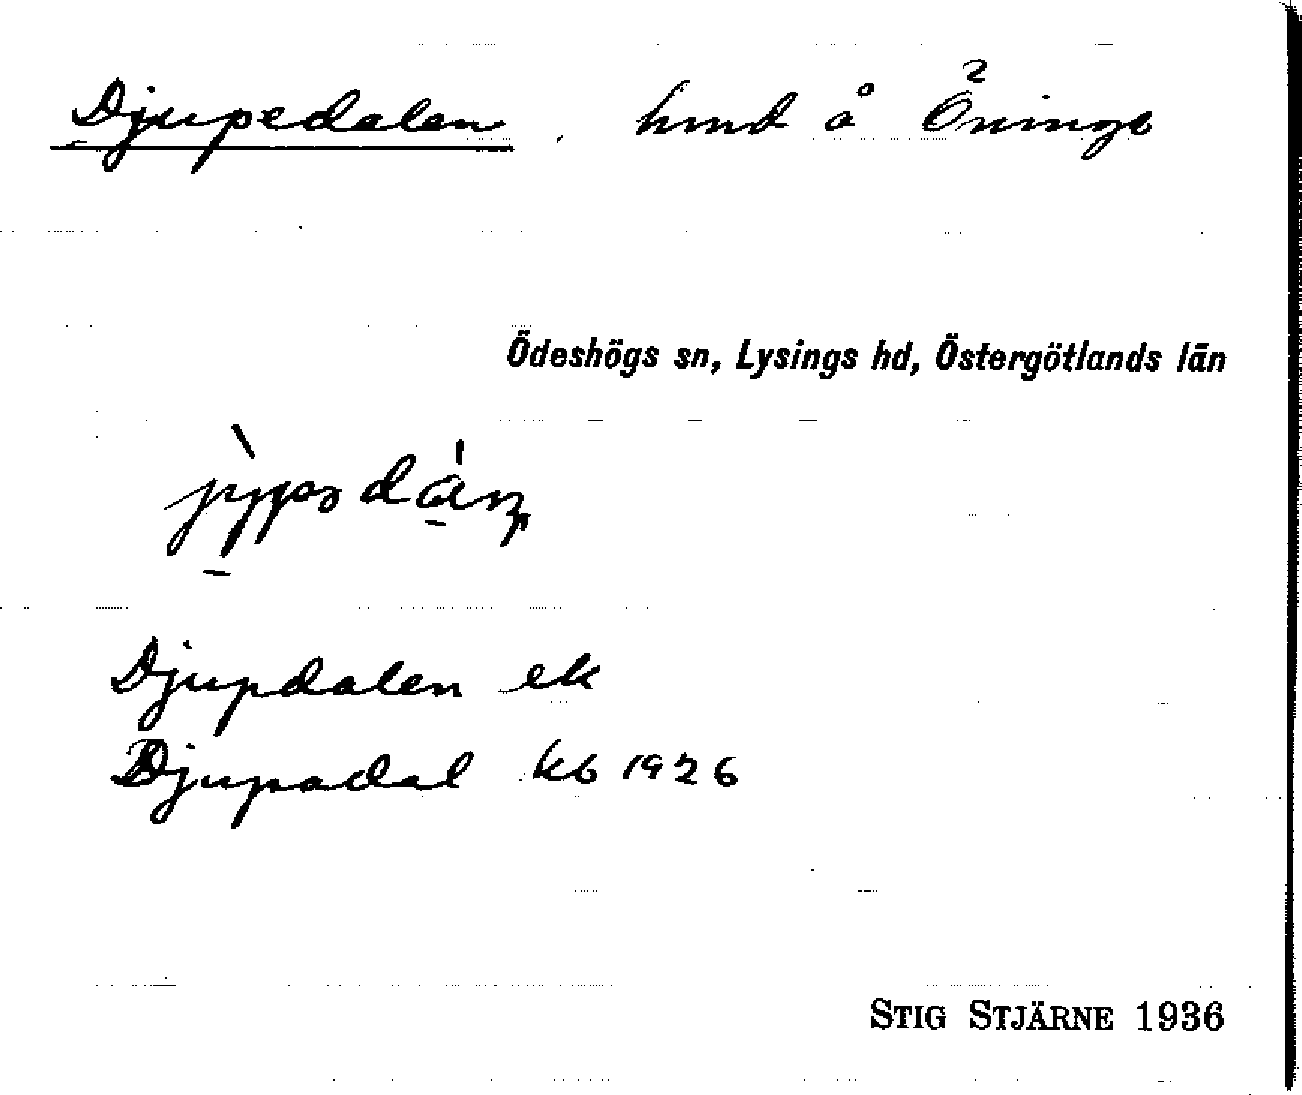 Djupedalen . hmd å Öninge
2
Ödeshögs sn, Lysings hd, Östergötlands län
Djupdalen ek
Djupadal kb 1926
STIG STJÄRNE 1936